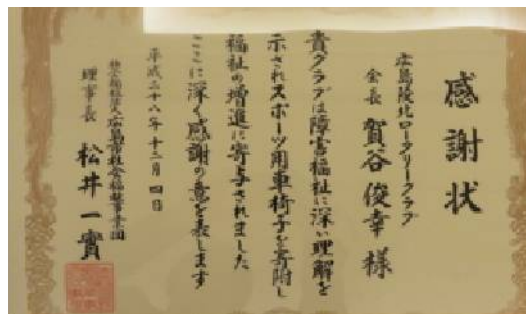 感謝状
広島陵北ロータリークラブ
会長 賀谷俊幸 様
貴クラブは障害福祉に深い理解を
示されスポーツ用車椅子を寄附し
福祉の増進に寄与されました
ここに深く感謝の意を表します
平成二十八年十二月四日
社会福祉法人広島市社会福祉事業団
理事長 松井一實